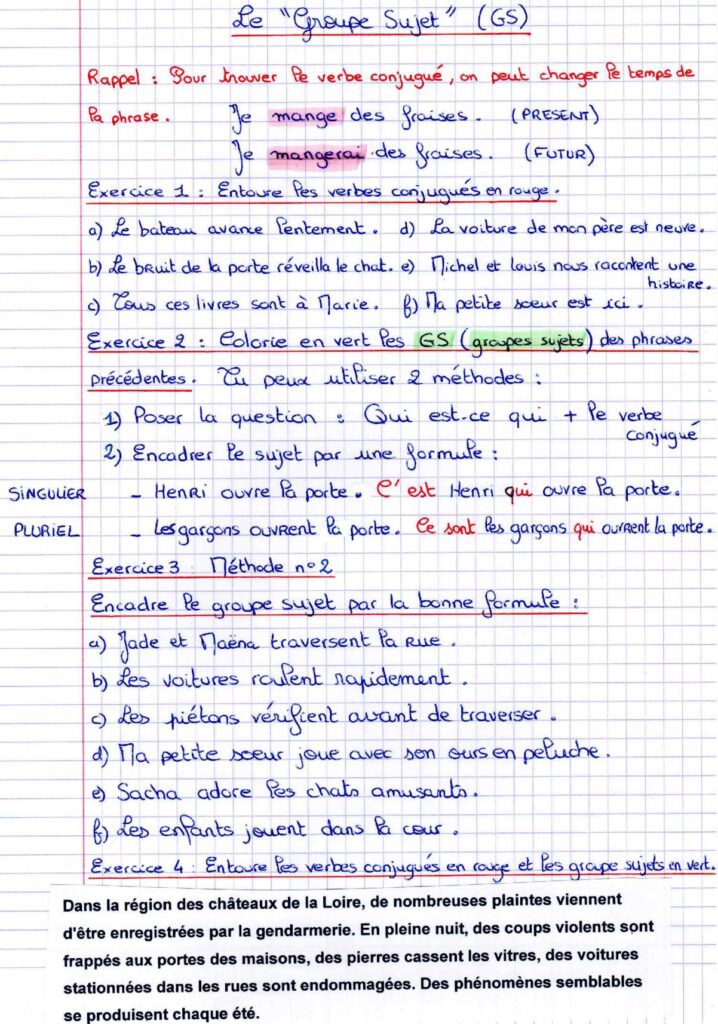 Le "Groupe Sujet" (GS)
Rappel : Pour trouver le verbe conjugué, on peut changer le temps de
la phrase. Je mange des fraises. (PRESENT)
Je mangerai des fraises. (FUTUR)
Exercice 1 : Entoure les verbes conjugués en rouge.
a) Le bateau avance lentement. d) La voiture de mon père est neuve.
b) Le bruit de la porte réveilla le chat. e) Michel et Louis nous racontent une
histoire.
c) Tous ces livres sont à Marie. f) Ma petite soeur est ici.
Exercice 2 : Colorie en vert les GS (groupes sujets) des phrases
précédentes. Tu peux utiliser 2 méthodes :
1) Poser la question : Qui est-ce qui + le verbe
conjugué
2) Encadrer le sujet par une formule :
SINGULIER - Henri ouvre la porte. C'est Henri qui ouvre la porte.
PLURIEL - Les garçons ouvrent la porte. Ce sont les garçons qui ouvrent la porte.
Exercice 3 : Méthode n°2
Encadre le groupe sujet par la bonne formule :
a) Jade et Maëna traversent la rue.
b) Les voitures roulent rapidement.
c) Les piétons vérifient avant de traverser.
d) Ma petite soeur joue avec son ours en peluche.
e) Sacha adore les chats amusants.
f) Les enfants jouent dans la cour.
Exercice 4 : Entoure les verbes conjugués en rouge et les groupe sujets en vert.
Dans la région des châteaux de la Loire, de nombreuses plaintes viennent
d'être enregistrées par la gendarmerie. En pleine nuit, des coups violents sont
frappés aux portes des maisons, des pierres cassent les vitres, des voitures
stationnées dans les rues sont endommagées. Des phénomènes semblables
se produisent chaque été.